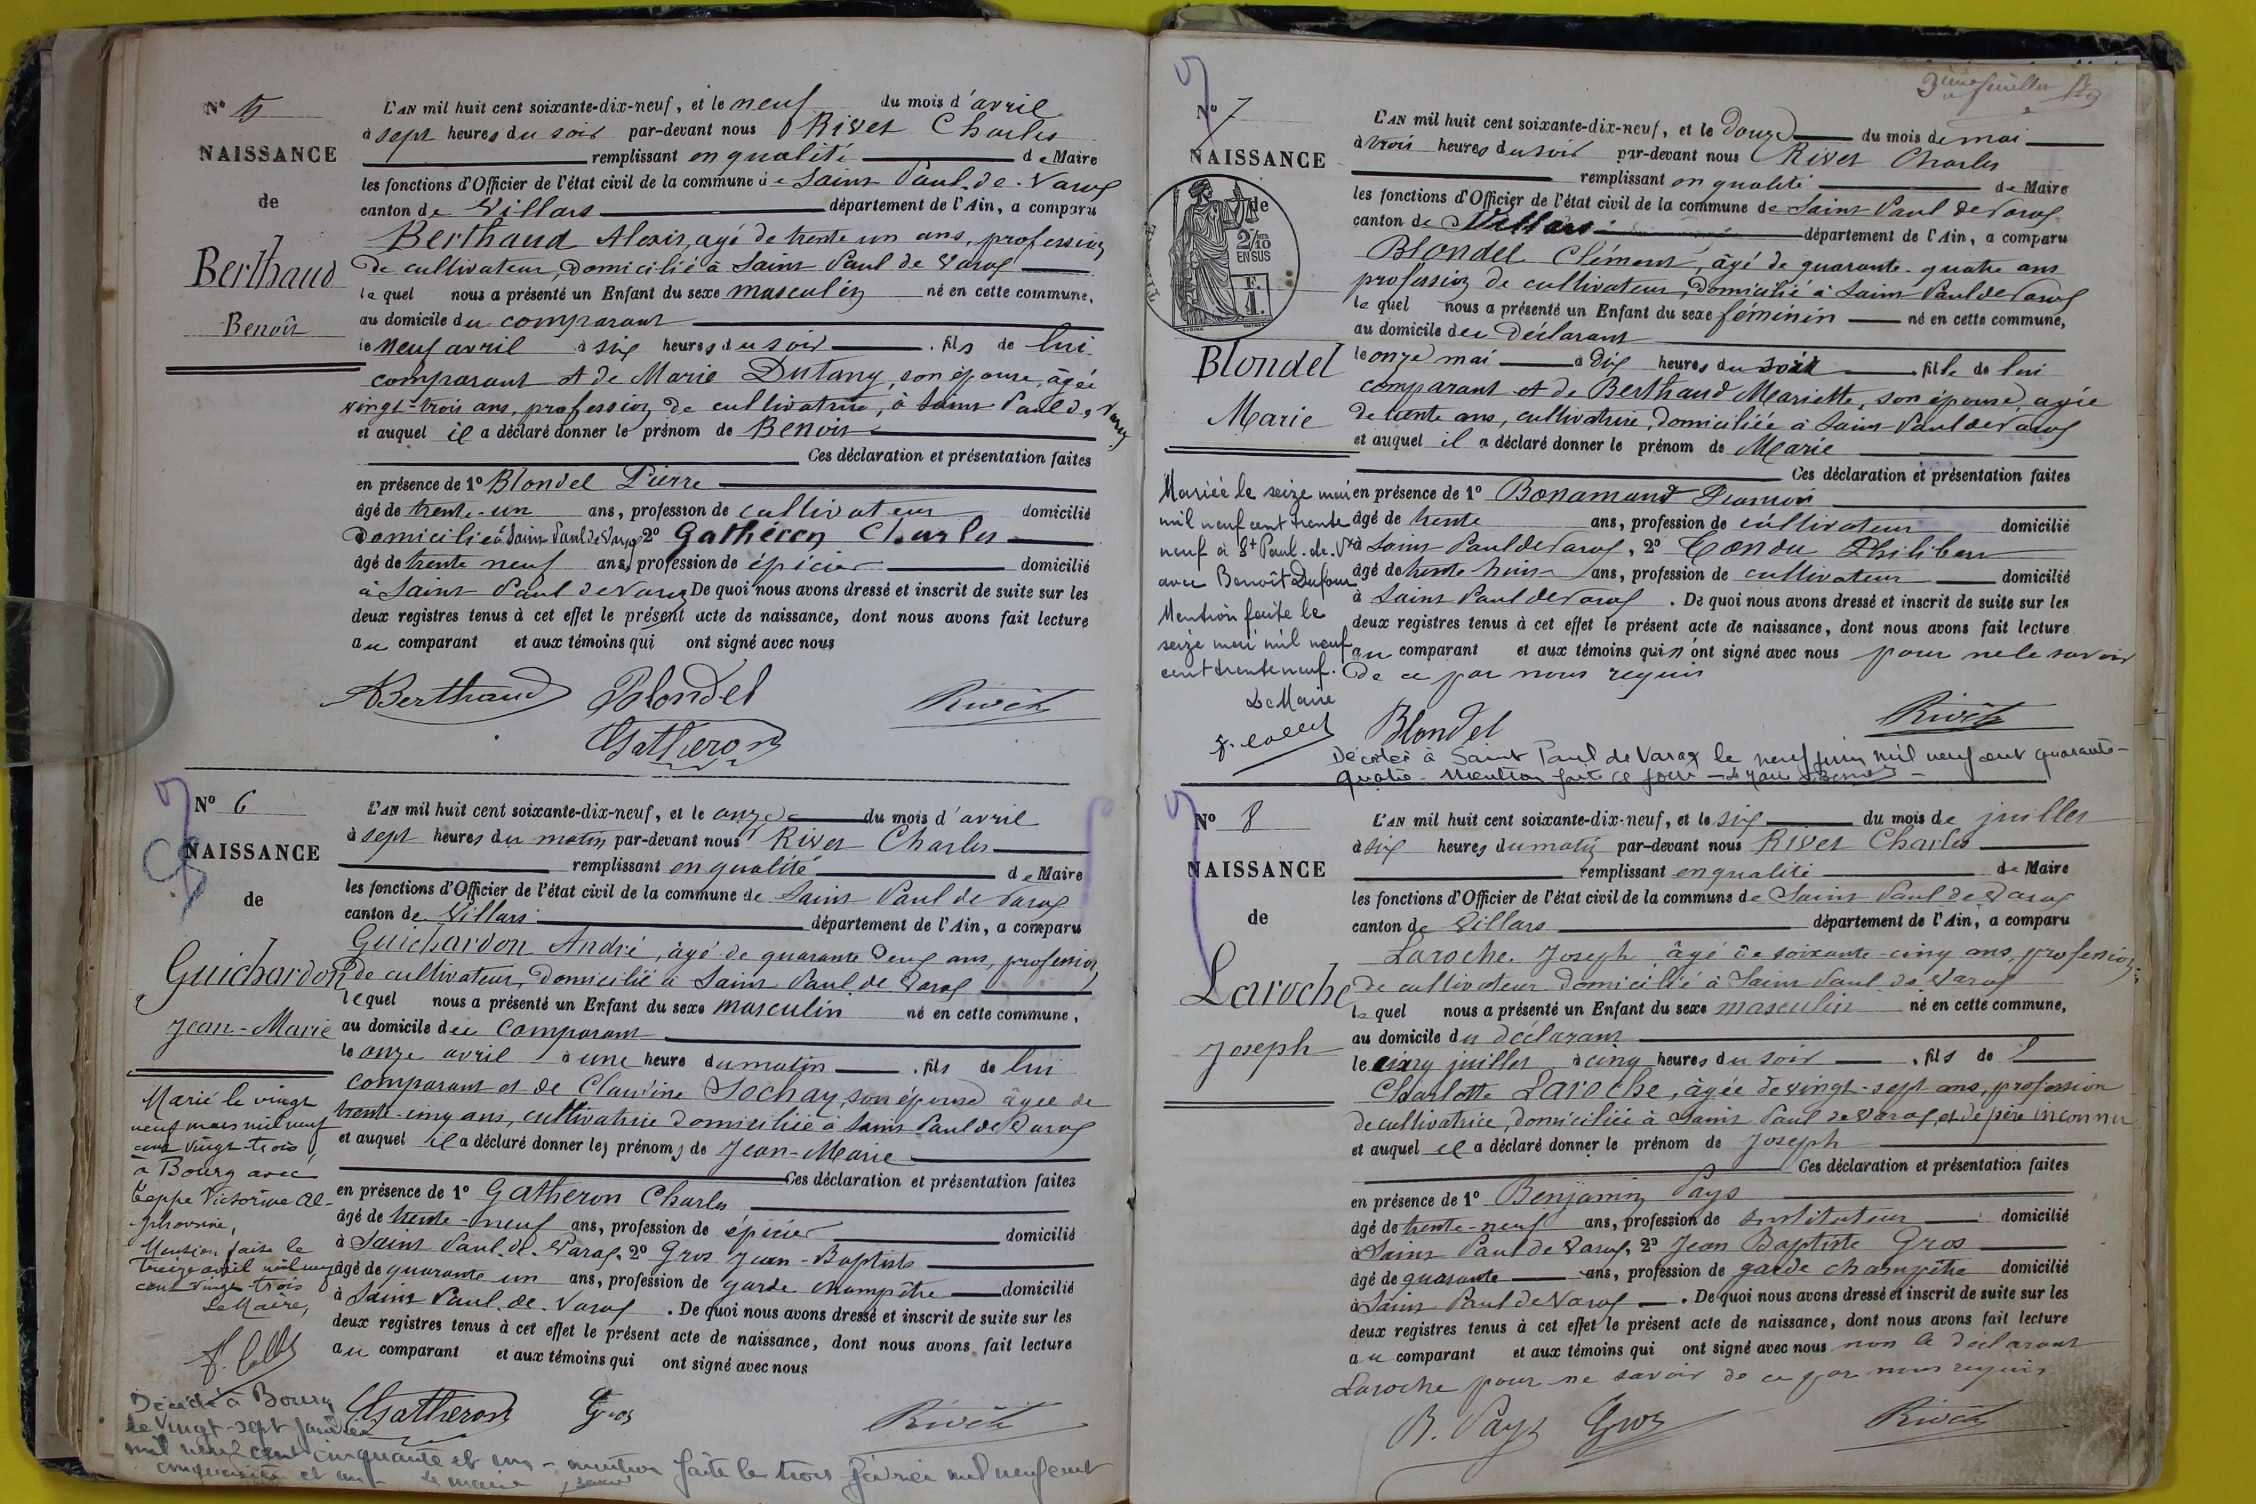 N° 5
NAISSANCE
de
Berthaud
Benoît
L'AN mil huit cent soixante-dix-neuf, et le neuf du mois d'avril
à sept heures du soir par-devant nous Rivet Charles
remplissant en qualité de Maire
les fonctions d'Officier de l'état civil de la commune de Saint Paul-de-Varax
canton de Villars département de l'Ain, a comparu
Berthaud Alexis, agé de trente un ans, profession
de cultivateur, domicilié à Saint Paul de Varax
le quel nous a présenté un Enfant du sexe masculin né en cette commune,
au domicile du comparant
le neuf avril à six heures du soir . fils de lui
comparant et de Marie Dutang, son épouse, âgée
vingt-trois ans, profession de cultivatrice, à Saint Paul de Varax
et auquel il a déclaré donner le prénom de Benoit
Ces déclaration et présentation faites
en présence de 1° Blondel Pierre
âgé de trente-un ans, profession de cultivateur domicilié
Domicilié à Saint Paul de Varax 2° Gatheron Charles
âgé de trente neuf ans, profession de épicier domicilié
à Saint Paul de Varax De quoi nous avons dressé et inscrit de suite sur les
deux registres tenus à cet effet le présent acte de naissance, dont nous avons fait lecture
au comparant et aux témoins qui ont signé avec nous
ABerthaud Blondel Rivet
Gatheron
N° 6
NAISSANCE
de
Guichardon
Jean-Marie
L'AN mil huit cent soixante-dix-neuf, et le onze du mois d'avril
à sept heures du matin par-devant nous Rivet Charles
remplissant en qualité de Maire
les fonctions d'Officier de l'état civil de la commune de Saint Paul de Varax
canton de Villars département de l'Ain, a comparu
Guichardon André, âgé de quarante deux ans, profession
de cultivateur, domicilié à Saint Paul de Varax
le quel nous a présenté un Enfant du sexe masculin né en cette commune,
au domicile du comparant
le onze avril à une heure du matin . fils de lui
comparant et de Claudine Sochay, son épouse âgée de
trente-cinq ans, cultivatrice domiciliée à Saint Paul de Varax
et auquel il a déclaré donner les prénoms de Jean-Marie
Ces déclaration et présentation faites
en présence de 1° Gatheron Charles
âgé de trente-neuf ans, profession de épicier domicilié
à Saint Paul-de-Varax, 2° Gros Jean-Baptiste
âgé de quarante un ans, profession de garde champêtre domicilié
à Saint Paul-de-Varax . De quoi nous avons dressé et inscrit de suite sur les
deux registres tenus à cet effet le présent acte de naissance, dont nous avons fait lecture
au comparant et aux témoins qui ont signé avec nous
Gatheron Gros Rivet
Marié le vingt
neuf mars mil neuf
cent vingt-trois
à Bourg avec
Teppe Victorine Al-
phonsine,
Mention faite le
treize avril mil neuf
cent vingt-trois
Le Maire,
Décédé à Bourg
le vingt-sept janvier
mil neuf cent cinquante et un - mention faite le trois février mil neuf cent
cinquante et un - Le maire
3ème feuillet
N° 7
NAISSANCE
de
2/10 EN SUS
F. 1.
Blondel
Marie
L'AN mil huit cent soixante-dix-neuf, et le douze du mois de mai
à trois heures du soir par-devant nous Rivet Charles
remplissant en qualité de Maire
les fonctions d'Officier de l'état civil de la commune de Saint Paul de Varax
canton de Villars département de l'Ain, a comparu
Blondel Clément, âgé de quarante-quatre ans
profession de cultivateur, domicilié à Saint Paul de Varax
le quel nous a présenté un Enfant du sexe féminin né en cette commune,
au domicile du déclarant
le onze mai à dix heures du soir . fille de lui
comparant et de Berthaud Mariette, son épouse, agée
de trente ans, cultivatrice, domiciliée à Saint Paul de Varax
et auquel il a déclaré donner le prénom de Marie
Ces déclaration et présentation faites
en présence de 1° Bonamand
âgé de trente ans, profession de cultivateur domicilié
à Saint Paul de Varax, 2° Condu Philibert
âgé de trente huit ans, profession de cultivateur domicilié
à Saint Paul de Varax . De quoi nous avons dressé et inscrit de suite sur les
deux registres tenus à cet effet le présent acte de naissance, dont nous avons fait lecture
au comparant et aux témoins qui n'ont signé avec nous pour ne le savoir
de ce par nous requis
Blondel Rivet
Mariée le seize mai
mil neuf cent trente
neuf à St Paul-de-Vx
avec Benoît Dufour
Mention faite le
seize mai mil neuf
cent trente neuf.
Le Maire
Décédée à Saint Paul de Varax le neuf juin mil neuf cent quarante-
quatre - Mention faite ce jour - Le Maire
N° 8
NAISSANCE
de
Laroche
Joseph
L'AN mil huit cent soixante-dix-neuf, et le six du mois de juillet
à six heures du matin par-devant nous Rivet Charles
remplissant en qualité de Maire
les fonctions d'Officier de l'état civil de la commune de Saint Paul de Varax
canton de Villars département de l'Ain, a comparu
Laroche Joseph âgé de soixante-cinq ans, profession
de cultivateur domicilié à Saint Paul de Varax
le quel nous a présenté un Enfant du sexe masculin né en cette commune,
au domicile du déclarant
le cinq juillet à cinq heures du soir . fils de
Charlotte Laroche, âgée de vingt-sept ans, profession
de cultivatrice, domiciliée à Saint Paul de Varax, et de père inconnu
et auquel il a déclaré donner le prénom de Joseph
Ces déclaration et présentation faites
en présence de 1° Benjamin Pays
âgé de trente-neuf ans, profession de instituteur domicilié
à Saint Paul de Varax, 2° Jean Baptiste Gros
âgé de quarante ans, profession de garde champêtre domicilié
à Saint Paul de Varax . De quoi nous avons dressé et inscrit de suite sur les
deux registres tenus à cet effet le présent acte de naissance, dont nous avons fait lecture
au comparant et aux témoins qui ont signé avec nous non le déclarant
Laroche pour ne savoir de ce par nous requis
B. Pays Gros Rivet